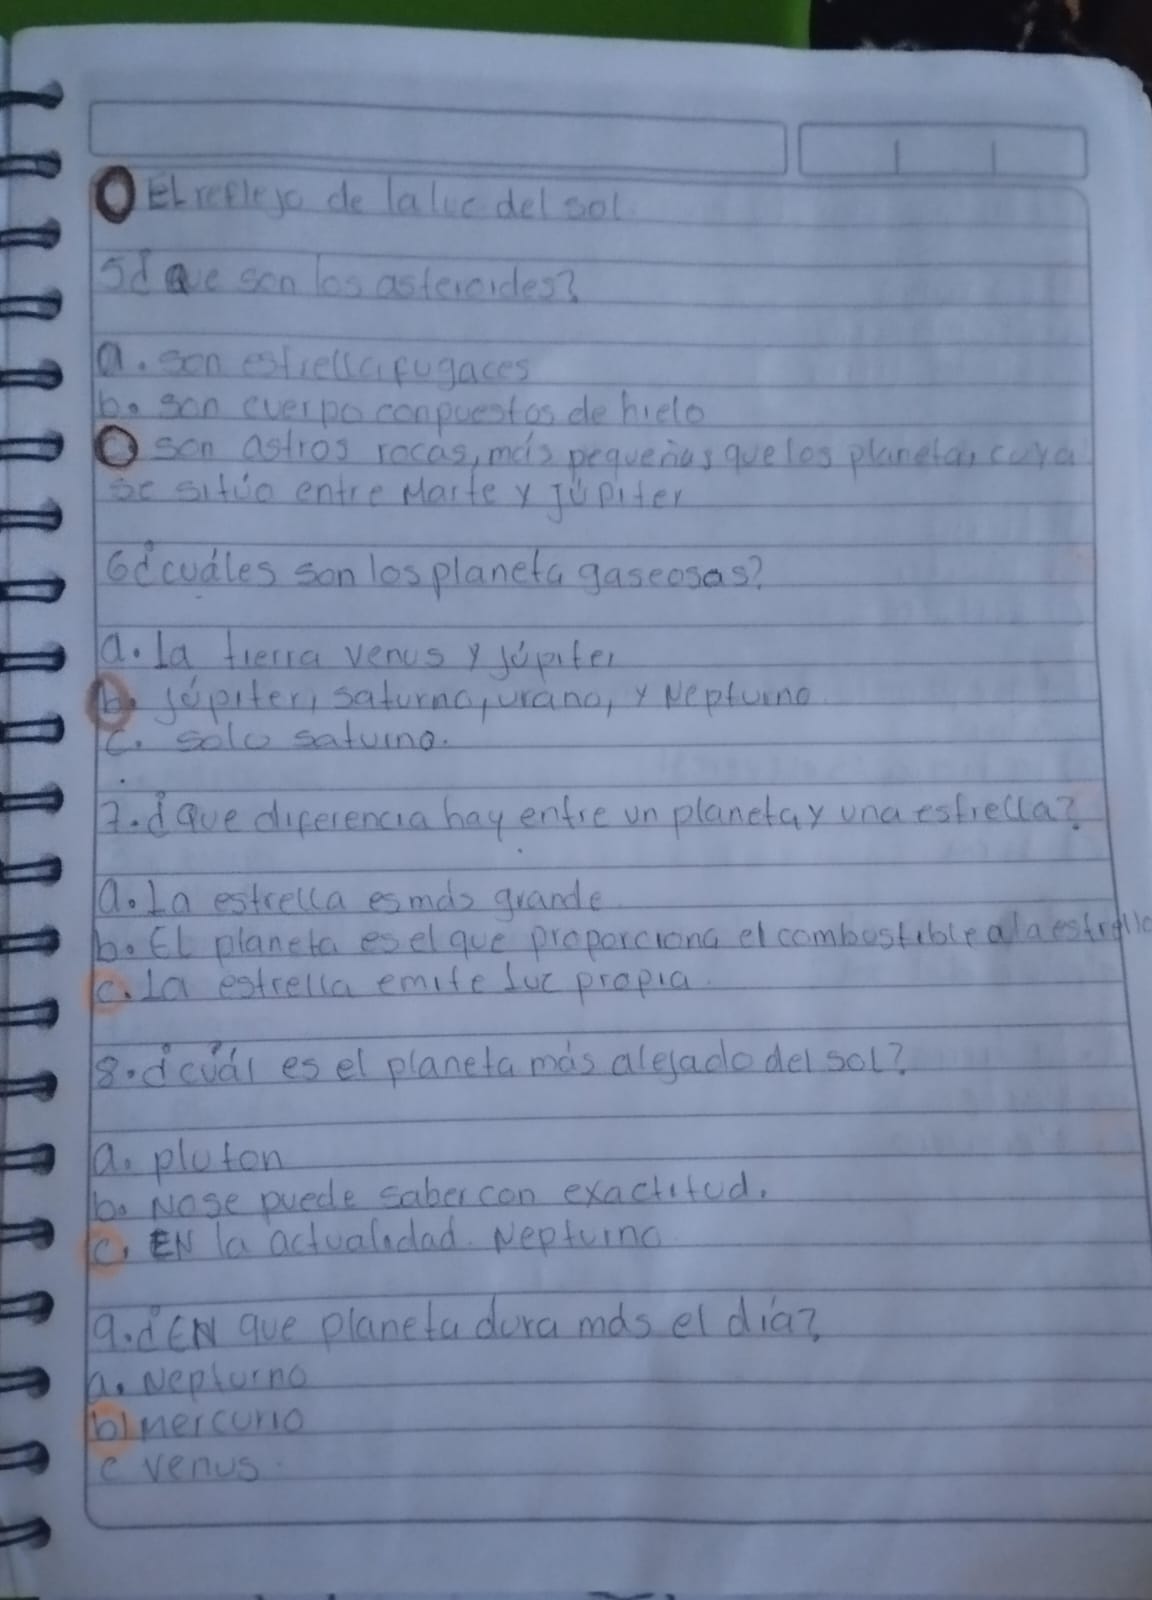 El reflejo de la luc del sol.
5¿ Que son los asteroides?
a. son estrella fugaces
b. son cuerpo conpuestos de hielo
son astros rocas, más pequeñas que los planetas, cuya
se sitúo entre Marte y Júpiter
6¿cuáles son los planeta gaseosas?
a. La tierra venus y júpiter
b. júpiter, saturno, urano, y Nepturno
c. solo saturno.
7.¿Que diferencia hay entre un planeta y una estrella?
a. La estrella es más grande
b. El planeta es el que proporciona el combustible a la estrella
c. La estrella emite luz propia.
8.¿cuál es el planeta más alejado del sol?
a. pluton
b. No se puede saber con exactitud.
c. EN la actualidad. Nepturno.
9.¿EN que planeta dura más el día?
a. Nepturno
b) mercurio
c venus.